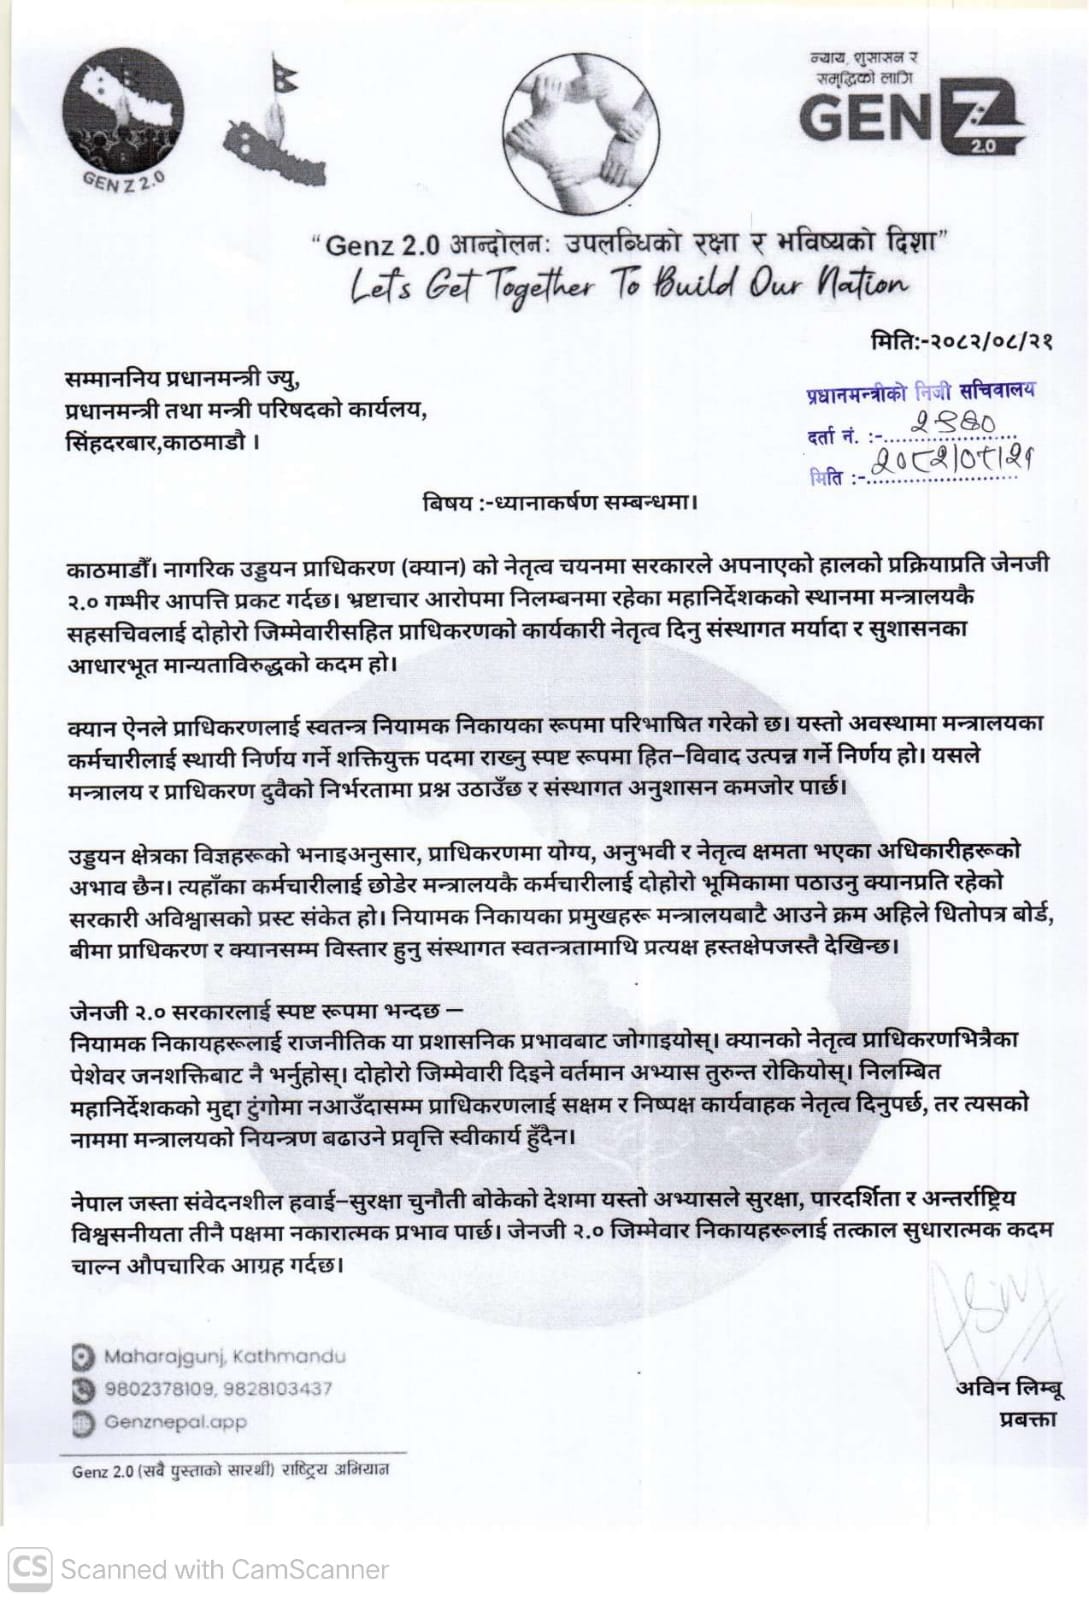 GEN Z 2.0
न्याय, शुसासन र
समृद्धिको लागि
GEN Z
2.0
“Genz 2.0 आन्दोलन: उपलब्धिको रक्षा र भविष्यको दिशा”
Let's Get Together To Build Our Nation
मिति:-२०८२/०८/२१
सम्माननिय प्रधानमन्त्री ज्यु,
प्रधानमन्त्री तथा मन्त्री परिषदको कार्यलय,
सिंहदरबार,काठमाडौ ।
प्रधानमन्त्रीको निजी सचिवालय
दर्ता नं. :-
मिति :- २०८२/०८/२१
बिषय :-ध्यानाकर्षण सम्बन्धमा।
काठमाडौँ। नागरिक उड्डयन प्राधिकरण (क्यान) को नेतृत्व चयनमा सरकारले अपनाएको हालको प्रक्रियाप्रति जेनजी
२.० गम्भीर आपत्ति प्रकट गर्दछ। भ्रष्टाचार आरोपमा निलम्बनमा रहेका महानिर्देशकको स्थानमा मन्त्रालयकै
सहसचिवलाई दोहोरो जिम्मेवारीसहित प्राधिकरणको कार्यकारी नेतृत्व दिनु संस्थागत मर्यादा र सुशासनका
आधारभूत मान्यताविरुद्धको कदम हो।
क्यान ऐनले प्राधिकरणलाई स्वतन्त्र नियामक निकायका रूपमा परिभाषित गरेको छ। यस्तो अवस्थामा मन्त्रालयका
कर्मचारीलाई स्थायी निर्णय गर्ने शक्तियुक्त पदमा राख्नु स्पष्ट रूपमा हित–विवाद उत्पन्न गर्ने निर्णय हो। यसले
मन्त्रालय र प्राधिकरण दुवैको निर्भरतामा प्रश्न उठाउँछ र संस्थागत अनुशासन कमजोर पार्छ।
उड्डयन क्षेत्रका विज्ञहरूको भनाइअनुसार, प्राधिकरणमा योग्य, अनुभवी र नेतृत्व क्षमता भएका अधिकारीहरूको
अभाव छैन। त्यहाँका कर्मचारीलाई छोडेर मन्त्रालयकै कर्मचारीलाई दोहोरो भूमिकामा पठाउनु क्यानप्रति रहेको
सरकारी अविश्वासको प्रस्ट संकेत हो। नियामक निकायका प्रमुखहरू मन्त्रालयबाटै आउने क्रम अहिले धितोपत्र बोर्ड,
बीमा प्राधिकरण र क्यानसम्म विस्तार हुनु संस्थागत स्वतन्त्रतामाथि प्रत्यक्ष हस्तक्षेपजस्तै देखिन्छ।
जेनजी २.० सरकारलाई स्पष्ट रूपमा भन्दछ —
नियामक निकायहरूलाई राजनीतिक या प्रशासनिक प्रभावबाट जोगाइयोस्। क्यानको नेतृत्व प्राधिकरणभित्रैका
पेशेवर जनशक्तिबाट नै भर्नुहोस्। दोहोरो जिम्मेवारी दिइने वर्तमान अभ्यास तुरुन्त रोकियोस्। निलम्बित
महानिर्देशकको मुद्दा टुंगोमा नआउँदासम्म प्राधिकरणलाई सक्षम र निष्पक्ष कार्यवाहक नेतृत्व दिनुपर्छ, तर त्यसको
नाममा मन्त्रालयको नियन्त्रण बढाउने प्रवृत्ति स्वीकार्य हुँदैन।
नेपाल जस्ता संवेदनशील हवाई–सुरक्षा चुनौती बोकेको देशमा यस्तो अभ्यासले सुरक्षा, पारदर्शिता र अन्तर्राष्ट्रिय
विश्वसनीयता तीनै पक्षमा नकारात्मक प्रभाव पार्छ। जेनजी २.० जिम्मेवार निकायहरूलाई तत्काल सुधारात्मक कदम
चाल्न औपचारिक आग्रह गर्दछ।
Maharajgunj, Kathmandu
9802378109, 9828103437
Genznepal.app
अविन लिम्बू
प्रबक्ता
Genz 2.0 (सबै पुस्ताको सारथी) राष्ट्रिय अभियान
CS Scanned with CamScanner